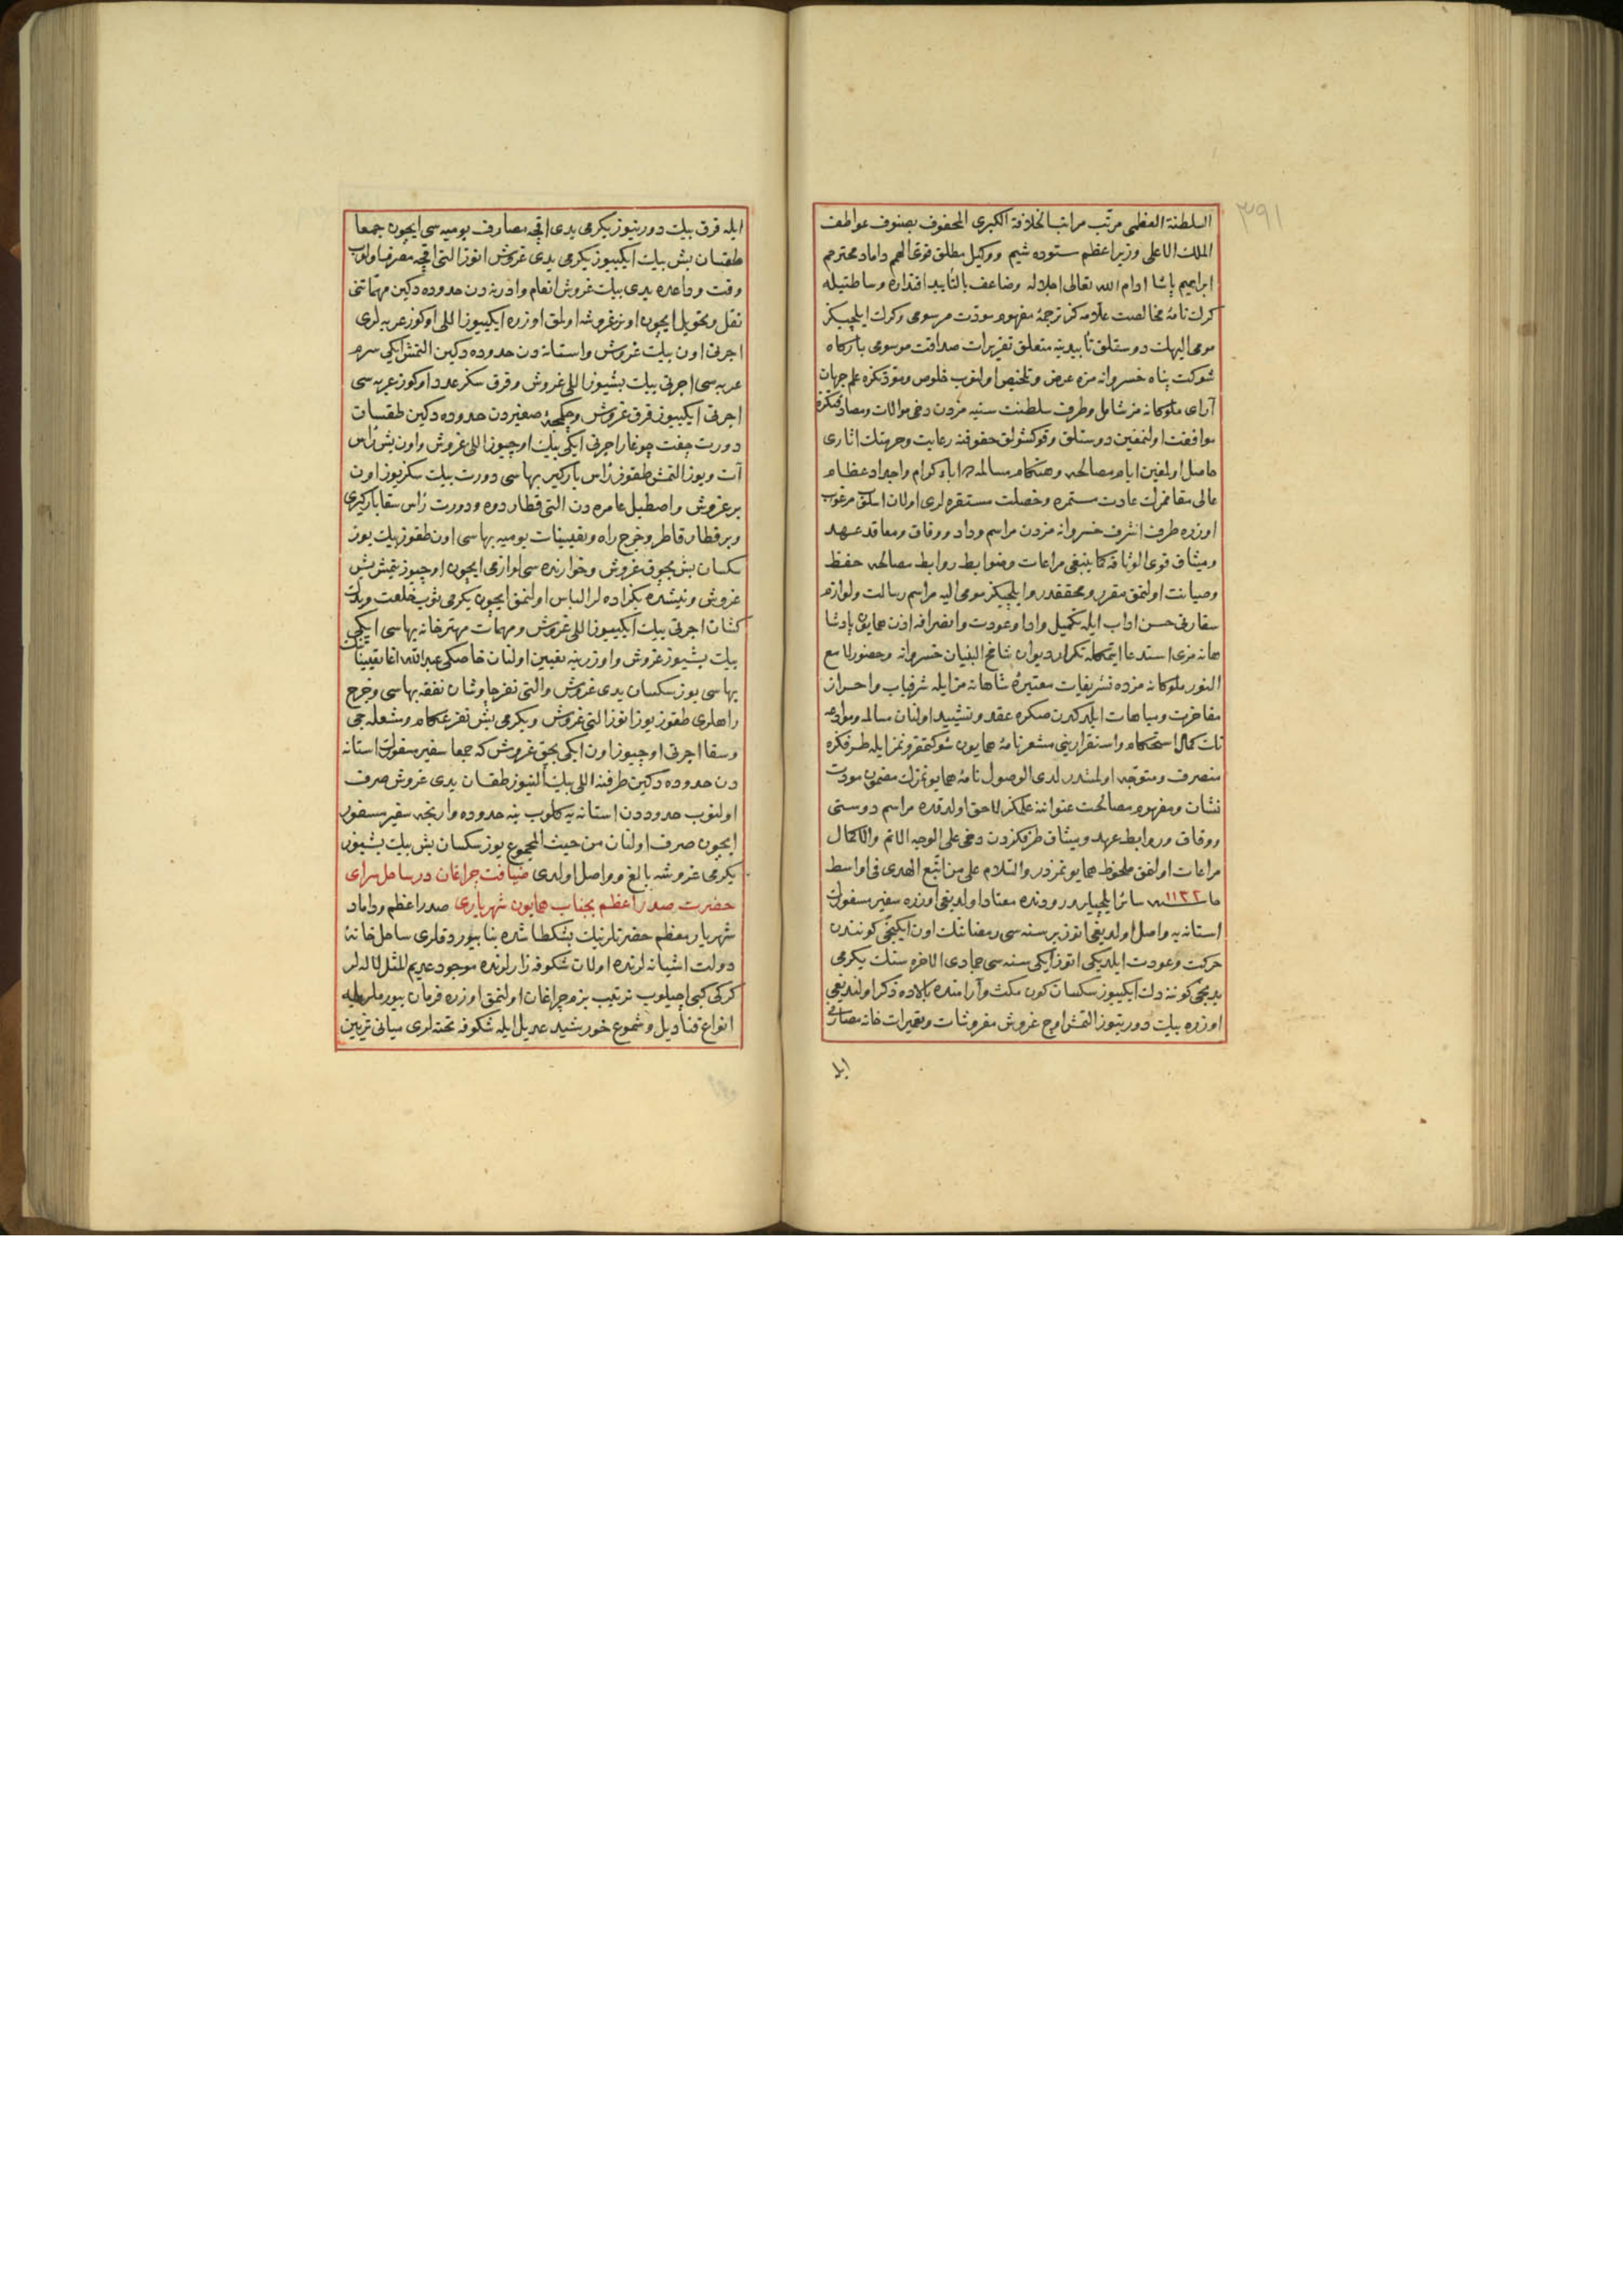 ٣٩١
السلطنة العظمی مرتب مراتب الخلافة الکبری المحفوف بصنوف عواطف
الملك الاعلی وزیر اعظم ستوده شیم و وکیل مطلق قوی الهمم داماد محترمم
ابراهیم پاشا ادام الله تعالی اجلاله وضاعف بالتأیید اقتداره وساطتیله
کرك نامهٔ مخالصت علامه کز ترجمهٔ مفهوم مودت مرسومی وکرك ایلچیکز
مومی الیهك دوستلق تأییدینه متعلق تقریرات صداقت موسومی بارگاه
شوکت پناه خسروانه مزه عرض وتلخیص اولنوب خلوص ومودتکزه علم جهان
آرای ملوکانه مز شامل وطرف سلطنت سنیه مزدن دخی موالات ومصادقتکزه
موافقت اولنمغین دوستلق وقوکشولق حقوقنه رعایت وحرمتك اثاری
حاصل اولمغین ایام مصالحه وهنکام مسالمه ده اباء کرام واجداد عظام
عالی مقامزك عادت مستمره وخصلت مستقره لری اولان اسلوب مرغوب
اوزره طرف اشرف خسروانه مزدن مراسم وداد ووفاق ومعاقد عهد
ومیثاق قوی الوثاقه کما ینبغی مراعات وضوابط روابط مصالحه حفظ
وصیانت اولنمق مقرر ومحققدر وایلچیکز مومی الیه مراسم رسالت ولوازم
سفارتی حسن اداب ایله تکمیل وادا وعودت وانصرافه اذن همایون پادشا
هانه مزی استدعا ایتمکله تکرار دیوان شامخ البنیان خسروانه وحضور لامع
النور ملوکانه مزده تشریفات معتبرهٔ شاهانه مز ایله شرفیاب واحراز
مفاخرت ومباهات ایلدکدن صکره عقد وتشیید اولنان مسالمه وموادعه
نك کمال استحکام واستقرارینی مشعر نامهٔ همایون شوکتمقرونمز ایله طرفکزه
منصرف ومتوجه اولمشدر لدی الوصول نامهٔ همایونمزك مضمون مودت
نشان ومفهوم مصالحت عنواننه علمکز لاحق اولدقده مراسم دوستی
ووفاق وروابط عهد ومیثاق طرفکزدن دخی علی الوجه الاتم والاکمال
مراعات اولنمق ملحوظ همایونمزدر والسلام علی من اتبع الهدی فی اواسط
سنه ١١٣٢ سائر ایلچیلر ورودنده معتاد اولدیغی اوزره سفیر مسفورك
استانه یه واصل اولدیغی اتوز بر سنه سی رمضاننك اون ایکنجی کونندن
حرکت وعودت ایلدیکی اتوز ایکی سنه سی جمادی الاخره سنك یکرمی
یدنجی کوننه دك ایکییوز سکسان کون مکث وآرامنده بالاده ذکر اولندیغی
اوزره بیك دورتیوز التمش اوچ غروش مفروشات وتعمیرات خانه مصارفی
ایله
ایله قرق بیك دورتیوز یکرمی یدی اقچه مصارف یومیه سی ایچون جمعا
طقسان بش بیك ایکییوز یکرمی یدی غروش اتوز التی اقچه مصرف اولوب
وقت وداعده یدی بیك غروش انعام وادرنه دن حدوده دکین مهماتنی
نقل وتحویل ایچون اونر غروشه اولمق اوزره ایکییوز اللی اوکوز عربه لری
اجرتی اون بیك غروش واستانه دن حدوده دکین التمش ایکی سرم
عربه سی اجرتی بیك بشیوز اللی غروش وقرق سکز عدد اوکوز عربه سی
اجرتی ایکییوز قرق غروش وچکمجهٔ صغیردن حدوده دکین طقسان
دورت جفت چوغار اجرتی ایکی بیك اوچیوز اللی غروش واون بش رأس
آت ویوز التمش طقوز رأس بارکیر بهاسی دورت بیك سکزیوز اون
بر غروش واصطبل عامره دن التی قطار دوه ودورت رأس سقا بارکیری
وبر قطار قاطر وخرج راه وتعیینات یومیه بهاسی اون طقوز بیك یوز
سکسان بش بچوق غروش وخوارنده سی لوازمی ایچون اوچیوز یتمش بش
غروش ونیشده بکزاده لر الباس اولنمق ایچون یکرمی ثوب خلعت ویدك
کشان اجرتی بیك ایکییوز اللی غروش ومهمات مهترخانه بهاسی ایکی
بیك بشیوز غروش واوزرینه تعیین اولنان خاصکی عبدالله اغا تعییناتی
بهاسی یوز سکسان یدی غروش والتی نفر چاوشان نفقه بهاسی وخرج
راهلری طقوز یوز اتوز التی غروش ویکرمی بش نفر عکام ومشعله جی
وسقا اجرتی اوچیوز اون ایکی بچق غروش که جمعا سفیر مسفورك استانه
دن حدوده دکین طرفنه اللی بیك التیوز طقسان یدی غروش صرف
اولنوب حدوددن استانه یه کلوب ینه حدوده وارنجه سفیر مسفور
ایچون صرف اولنان من حیث المجموع یوز سکسان بش بیك بشیوز
یکرمی غروشه بالغ وواصل اولدی ضیافت چراغان در ساحل سرای
حضرت صدر اعظم بجناب همایون شهریاری صدر اعظم وداماد
شهریار معظم حضرتلرینك بشکطاشده بنا بیوردقلری ساحل خانهٔ
دولت اشیانه لرنده اولان شکوفه زارلرنده موجود عدیم المثل لاله لر
کرکی کبی اچیلوب ترتیب بزم چراغان اولنمق اوزره فرمان بیورملریله
انواع قنادیل وشموع خورشید عدیل ایله شکوفه تخته لری میانی تزیین